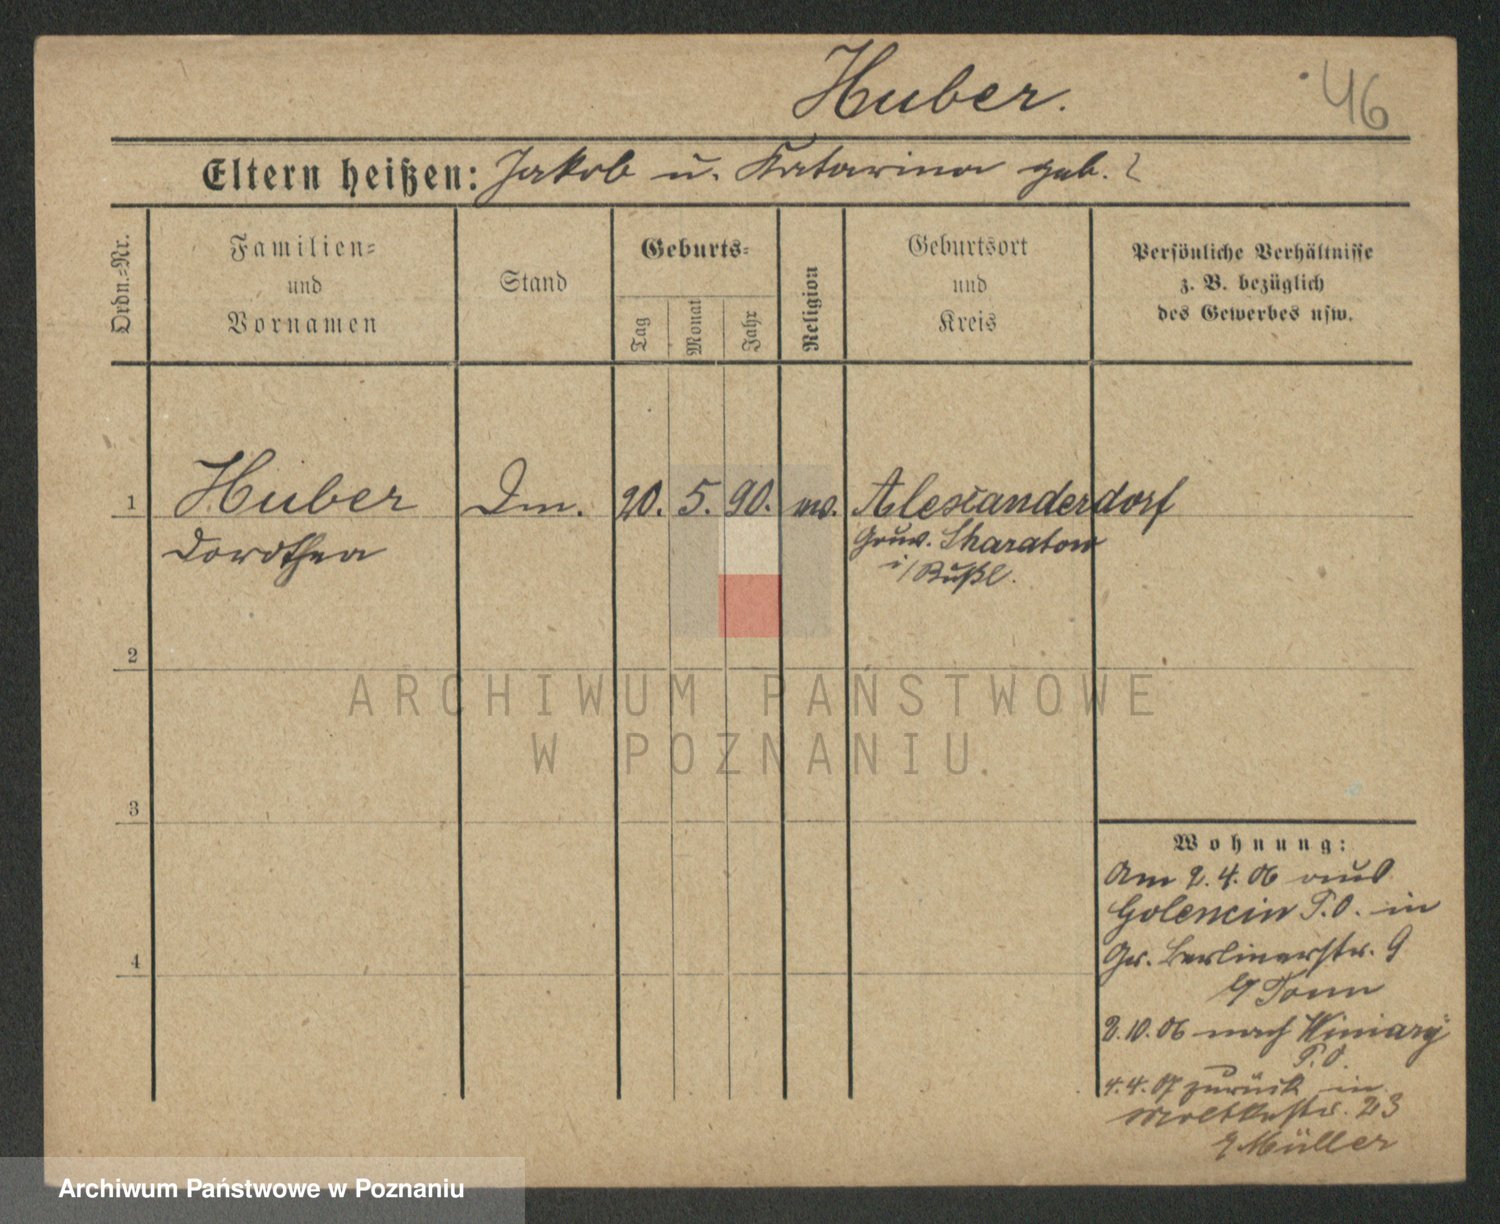 Huber. 46
Eltern heißen: Jakob u. Katarina geb. ?
Ordn.-Nr.
Familien-
und
Vornamen
Stand
Geburts-
Tag
Monat
Jahr
Religion
Geburtsort
und
Kreis
Persönliche Verhältnisse
z. B. bezüglich
des Gewerbes usw.
1 Huber Dm. 20. 5. 90. Alexanderdorf
Dorothea
Gouv. Sharatow
i/Rußl.
2
3
4
Wohnung:
Am 2. 4. 06 aus
Golencin P.O. in
Gr. Berlinerstr. 9
b/ Tonn
2.10.06 nach Winiary
P.O.
4.4.07 zurück in
Moltkestr. 23
b/ Müller
ARCHIWUM PAŃSTWOWE
W POZNANIU.
Archiwum Państwowe w Poznaniu